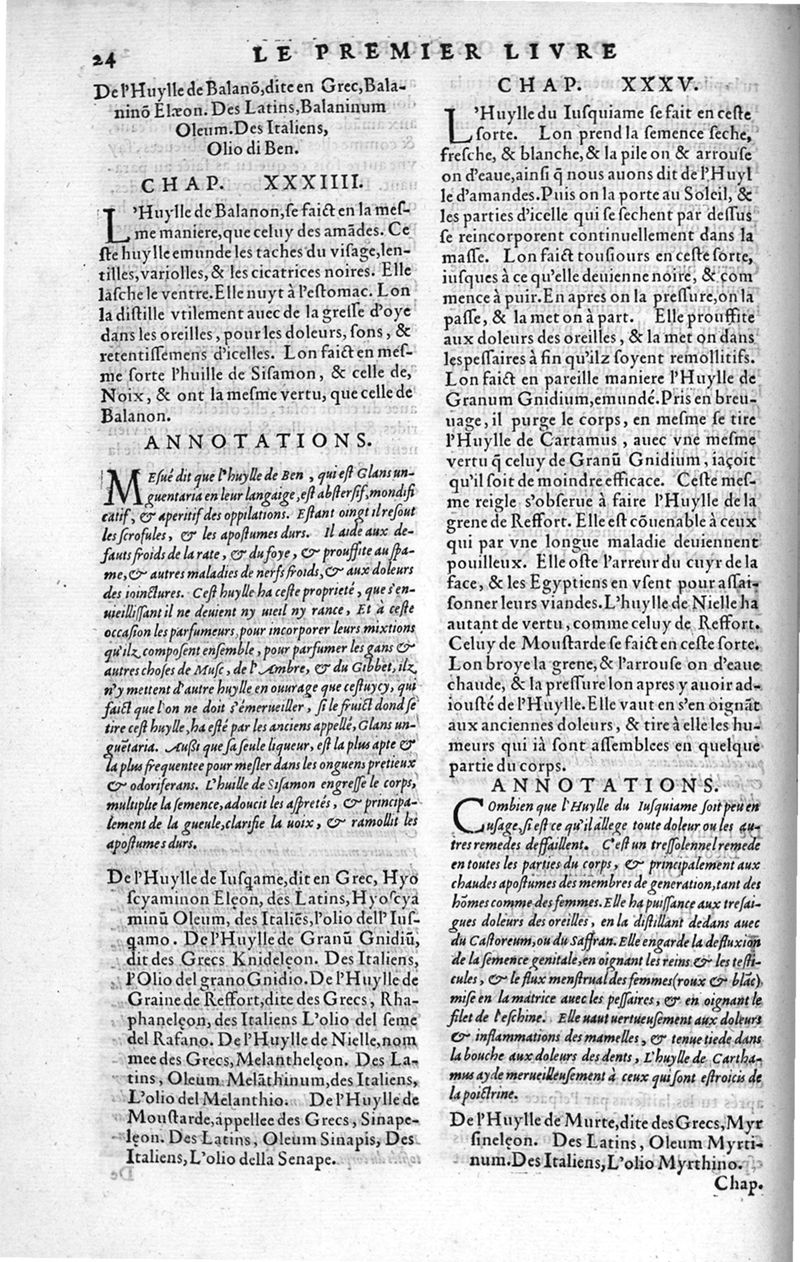 24
LE PREMIER LIVRE
De l'Huylle de Balanō, dite en Grec, Bala-
ninō Élæon. Des Latins, Balaninum
Oleum. Des Italiens,
Olio di Ben.
CHAP. XXXIIII.
L'Huylle de Balanon, se faict en la mes-
me maniere, que celuy des amādes. Ce
ste huylle emunde les taches du visage, len-
tilles, variolles, & les cicatrices noires. Elle
lasche le ventre. Elle nuyt à l'estomac. Lon
la distille vtilement auec de la gresse d'oye
dans les oreilles, pour les doleurs, sons, &
retentissemens d'icelles. Lon faict en mes-
me sorte l'huille de Sisamon, & celle de,
Noix, & ont la mesme vertu, que celle de
Balanon.
ANNOTATIONS.
MEsué dit que l'huylle de Ben, qui est Glans un-
guentaria en leur langaige, est abstersif, mondifi
catif, & aperitif des oppilations. Estant oingt il resout
les scrofules, & les apostumes durs. Il aide aux de-
fauts froids de la rate, & du foye, & prouffite au spa-
me, & autres maladies de nerfs froids, & aux doleurs
des ioinctures. Cest huylle ha ceste proprieté, que s'en-
uieillissant il ne deuient ny uieil ny rance, Et à ceste
occasion les parfumeurs, pour incorporer leurs mixtions
qu'ilz composent ensemble, pour parfumer les gans &
autres choses de Musc, de l'Ambre, & du Gibbet, ilz
n'y mettent d'autre huylle en ouurage que cestuycy, qui
faict que l'on ne doit s'émerueiller, si le fruict dond se
tire cest huylle, ha esté par les anciens appellé, Glans un-
guētaria. Aussi que sa seule liqueur, est la plus apte &
la plus frequentee pour mesler dans les onguens pretieux
& odoriferans. L'huille de Sisamon engresse le corps,
multiplie la semence, adoucit les aspretés, & principa-
lement de la gueule, clarifie la uoix, & ramollit les
apostumes durs.
De l'Huylle de Iusqame, dit en Grec, Hyo
scyaminon Elęon, des Latins, Hyoscya
minū Oleum, des Italiēs, l'olio dell' Ius-
qamo. De l'Huylle de Granū Gnidiū,
dit des Grecs Knidelęon. Des Italiens,
l'Olio del grano Gnidio. De l'Huylle de
Graine de Reffort, dite des Grecs, Rha-
phanelęon, des Italiens L'olio del seme
del Rafano. De l'Huylle de Nielle, nom
mee des Grecs, Melanthelęon. Des La-
tins, Oleum Melāthinum, des Italiens,
L'olio del Melanthio. De l'Huylle de
Moustarde, appellee des Grecs, Sinape-
lęon. Des Latins, Oleum Sinapis, Des
Italiens, L'olio della Senape.
CHAP. XXXV.
L'Huylle du Iusquiame se fait en ceste
sorte. Lon prend la semence seche,
fresche, & blanche, & la pile on & arrouse
on d'eaue, ainsi q̄ nous auons dit de l'Huyl
le d'amandes. Puis on la porte au Soleil, &
les parties d'icelle qui se sechent par dessus
se reincorporent continuellement dans la
masse. Lon faict tousiours en ceste sorte,
iusques à ce qu'elle deuienne noire, & com
mence à puir. En apres on la pressure, on la
passe, & la met on à part. Elle prouffite
aux doleurs des oreilles, & la met on dans
les pessaires à fin qu'ilz soyent remollitifs.
Lon faict en pareille maniere l'Huylle de
Granum Gnidium, emundé. Pris en breu-
uage, il purge le corps, en mesme se tire
l'Huylle de Cartamus, auec vne mesme
vertu q̄ celuy de Granū Gnidium, iaçoit
qu'il soit de moindre efficace. Ceste mes-
me reigle s'obserue à faire l'Huylle de la
grene de Reffort. Elle est cōuenable à ceux
qui par vne longue maladie deuiennent
pouilleux. Elle oste l'arreur du cuyr de la
face, & les Egyptiens en vsent pour assai-
sonner leurs viandes. L'huylle de Nielle ha
autant de vertu, comme celuy de Reffort.
Celuy de Moustarde se faict en ceste sorte.
Lon broye la grene, & l'arrouse on d'eaue
chaude, & la pressure lon apres y auoir ad-
iousté de l'Huylle. Elle vaut en s'en oignāt
aux anciennes doleurs, & tire à elle les hu-
meurs qui ià sont assemblees en quelque
partie du corps.
ANNOTATIONS.
COmbien que l'Huylle du Iusquiame soit peu en
usage, si est ce qu'il allege toute doleur ou les au-
tres remedes deffaillent. C'est un tressolennel remede
en toutes les parties du corps, & principalement aux
chaudes apostumes des membres de generation, tant des
hōmes comme des femmes. Elle ha puissance aux tresai-
gues doleurs des oreilles, en la distillant dedans auec
du Castoreum, ou du Saffran. Elle engarde la defluxion
de la semence genitale, en oignant les reins & les testi-
cules, & le flux menstrual des femmes (roux & blāc)
mise en la matrice auec les pessaires, & en oignant le
filet de l'eschine. Elle uaut uertueusement aux doleurs
& inflammations des mamelles, & tenue tiede dans
la bouche aux doleurs des dents, L'huylle de Cartha-
mus ayde merueilleusement à ceux qui sont estroicis de
la poictrine.
De l'Huylle de Murte, dite des Grecs, Myr
sinelęon. Des Latins, Oleum Myrti-
num. Des Italiens, L'olio Myrthino.
Chap.